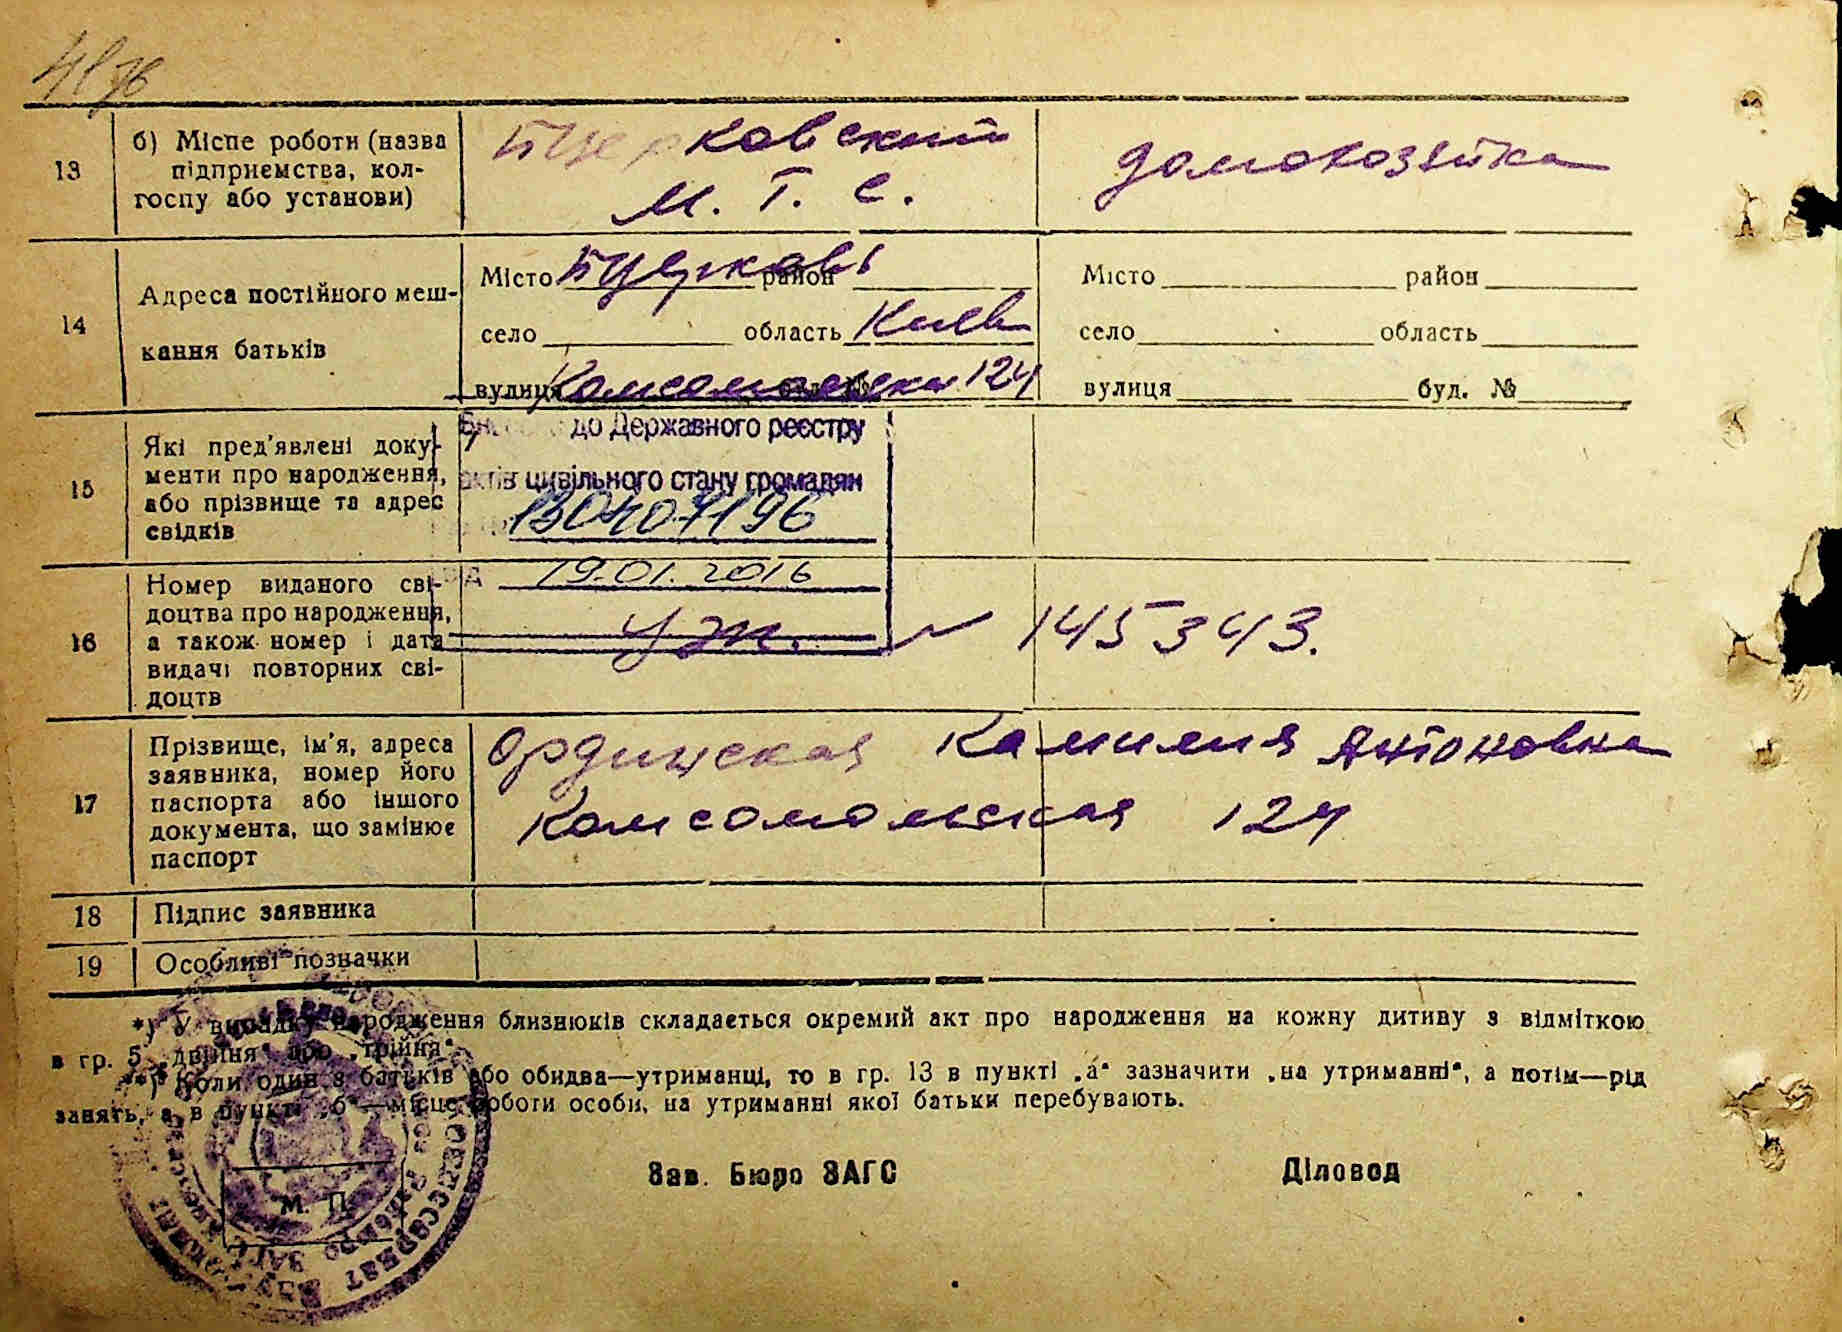 13
б) Місце роботи (назва
підприемства, кол-
госпу або установи)
Бцерковский
М. Т. С.
домохозяйка
14
Адреса постійного меш-
кання батьків
Місто Бцерковь район
село область Киев
вулиця Комсомольская буд. № 124
Місто район
село область
вулиця буд. №
15
Які пред'явлені доку-
менти про народження,
або прізвище та адрес
свідків
до Державного реєстру
актів цивільного стану громадян
19.01.2016
16
Номер виданого сві-
доцтва про народження,
а також номер і дата
видачі повторних сві-
доцтв
145343.
17
Прізвище, ім'я, адреса
заявника, номер його
паспорта або іншого
документа, що замінює
паспорт
Ордынская Камилия Антоновна
Комсомольская 124
18
Підпис заявника
19
Особливі позначки
*) У випадку народження близнюків складається окремий акт про народження на кожну дитину з відміткою
в гр. 5 „двійня" або „трійня"
**) Коли один з батьків або обидва—утриманці, то в гр. 13 в пункті „а" зазначити „на утриманні", а потім—рід
занять, а в пункті „б"—місце роботи особи, на утриманні якої батьки перебувають.
Зав. Бюро ЗАГС
Діловод
М. П.